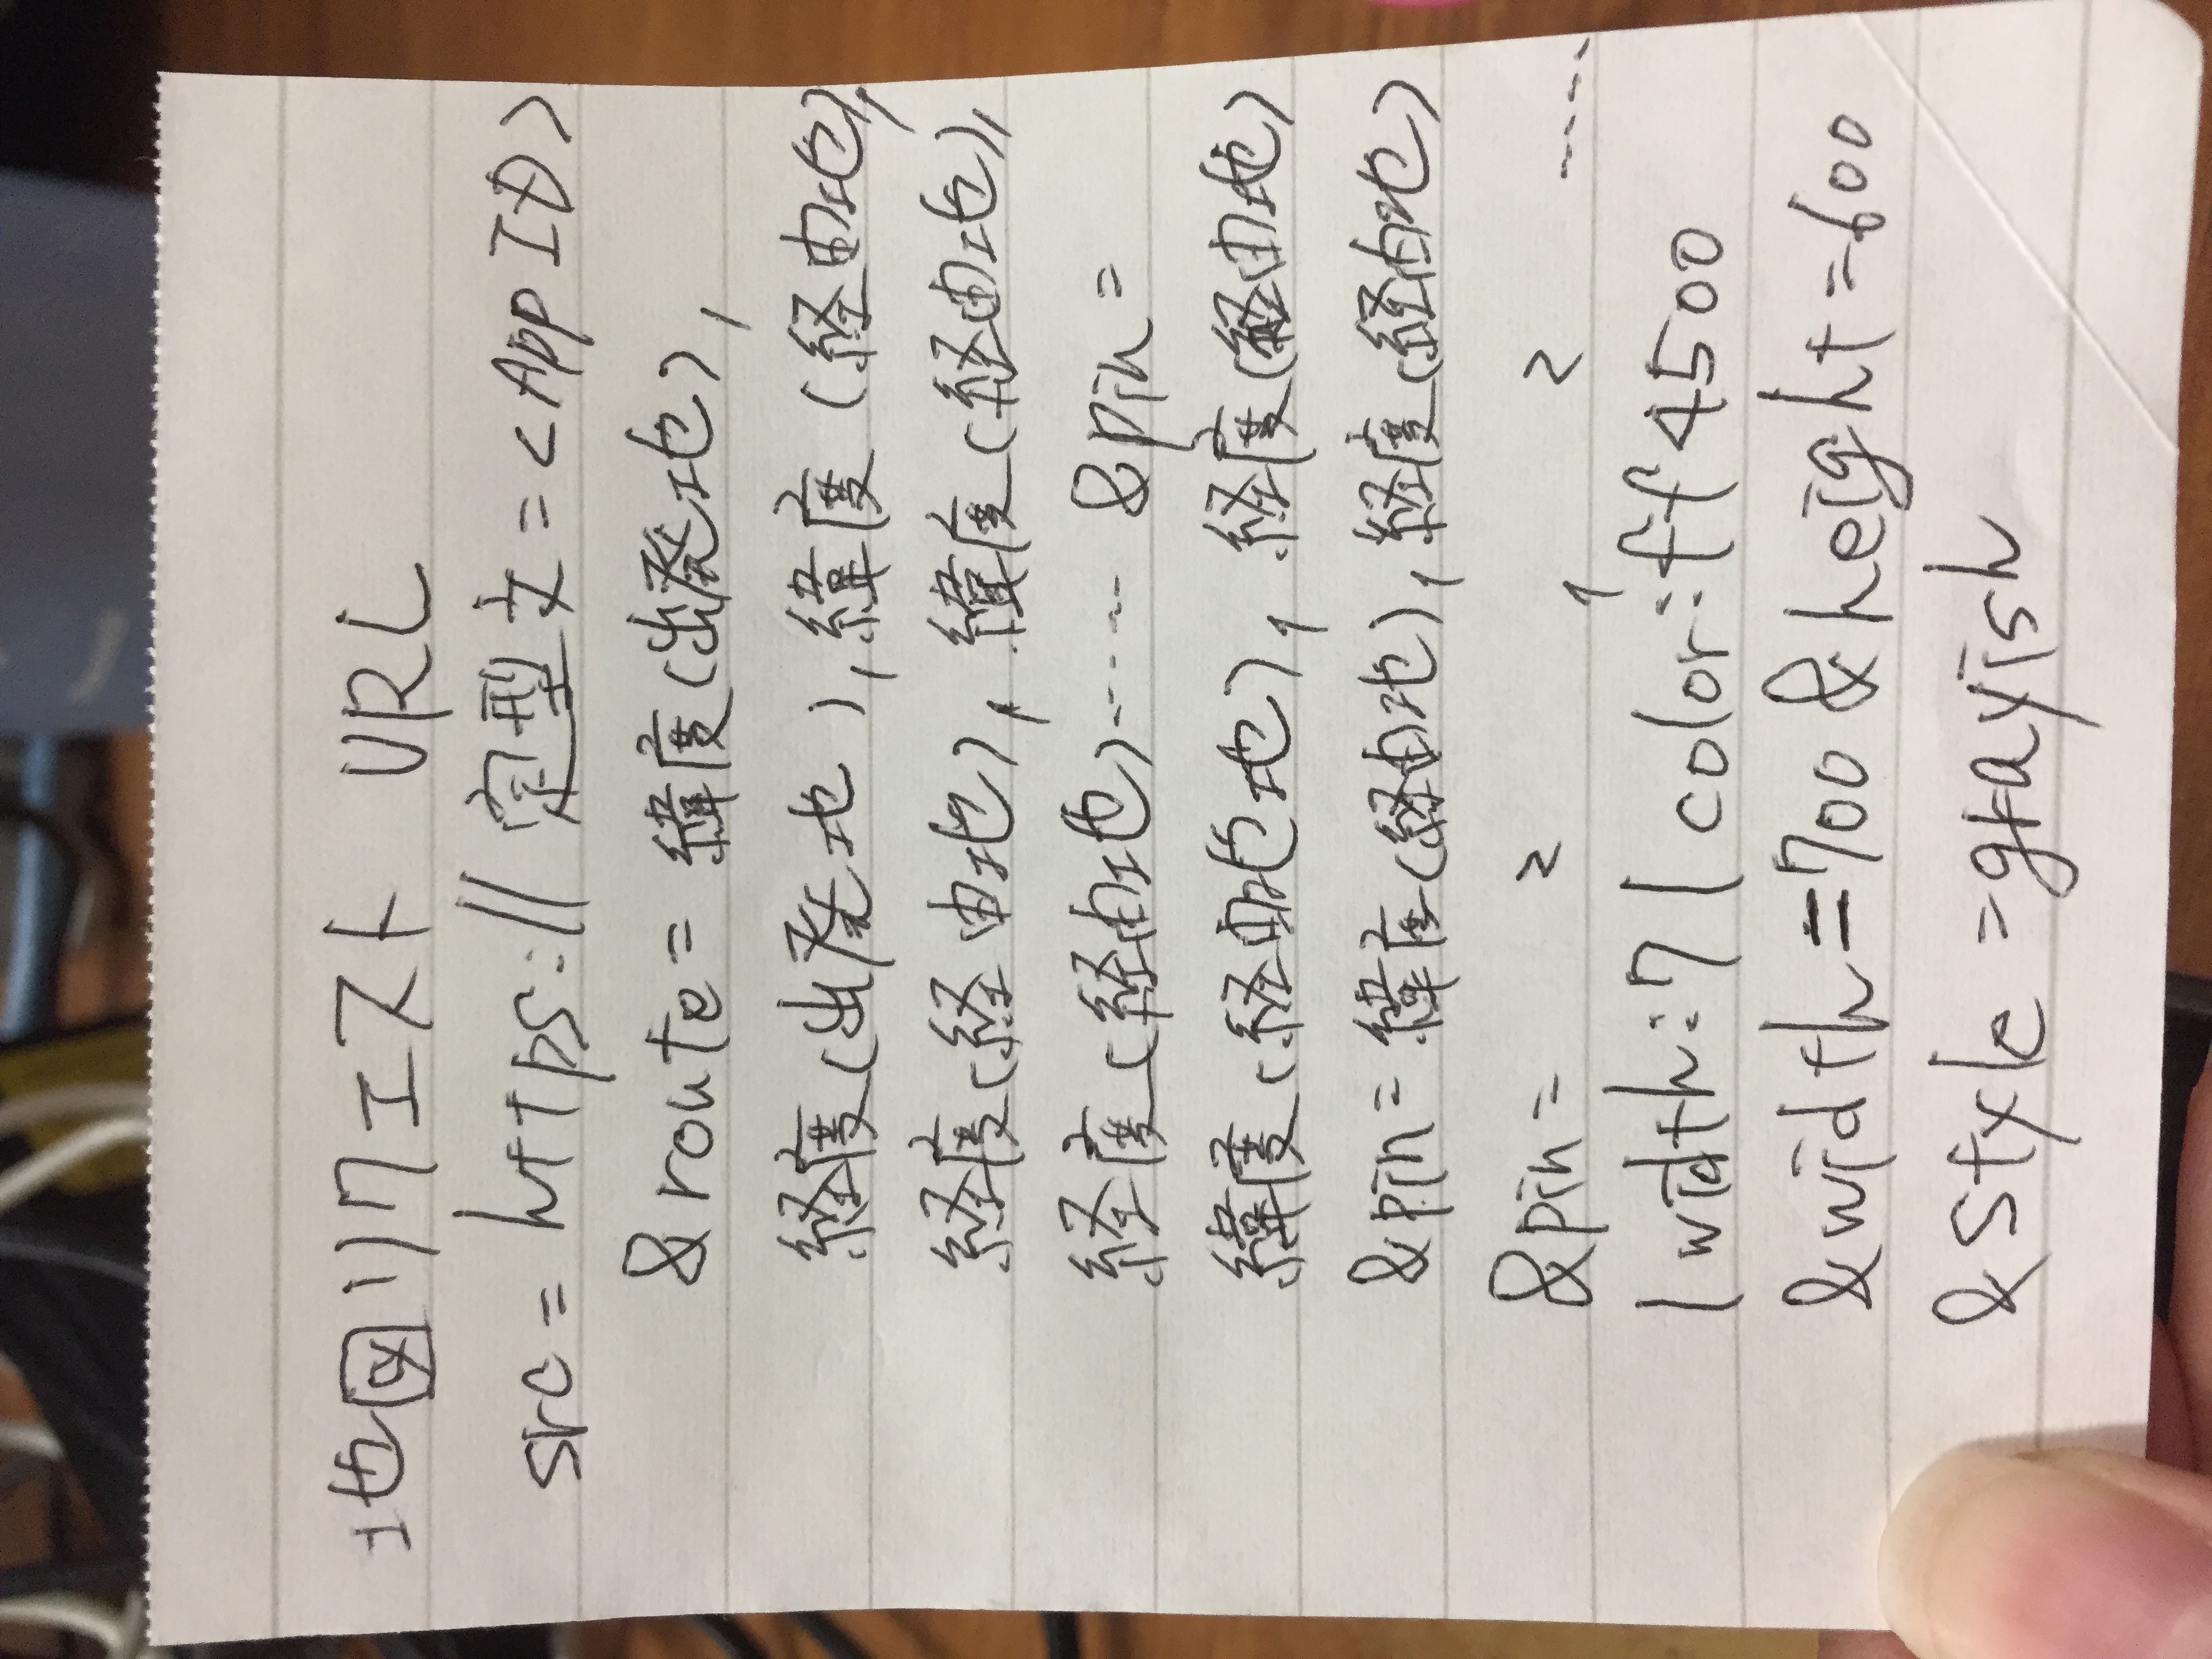 地図リクエスト URL
src = https:// 定型文 = <App ID>
&route = 緯度(出発地),
経度(出発地),緯度(経由地),
経度(経由地),緯度(経由地),
経度(経由地)…… &pin =
緯度(経由地地),経度(経由地)
&pin = 緯度(経由地),経度(経由地)
&pin = 〃 , 〃 ……
|width:7|color:ff4500
&width=700&height=600
&style=grayish